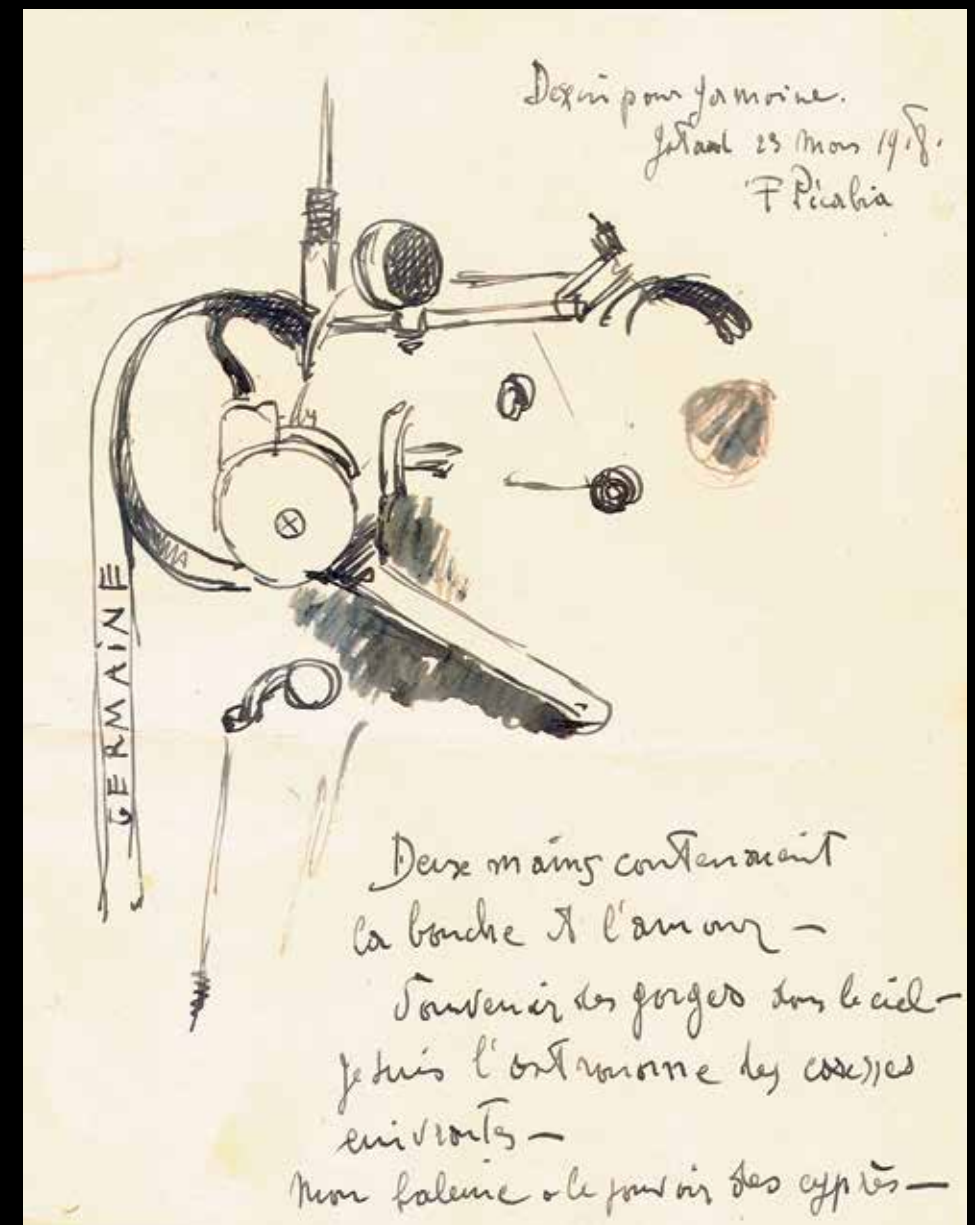 Dessin pour Germaine.
Gstaad 23 Mars 1918.
F Picabia
GERMAINE
Deux mains contenaient
la bouche et l'amour —
Souvenir des gorges dans le ciel —
Je suis l'astronome des caresses
enivrantes —
Mon haleine a le pouvoir des cyprès —